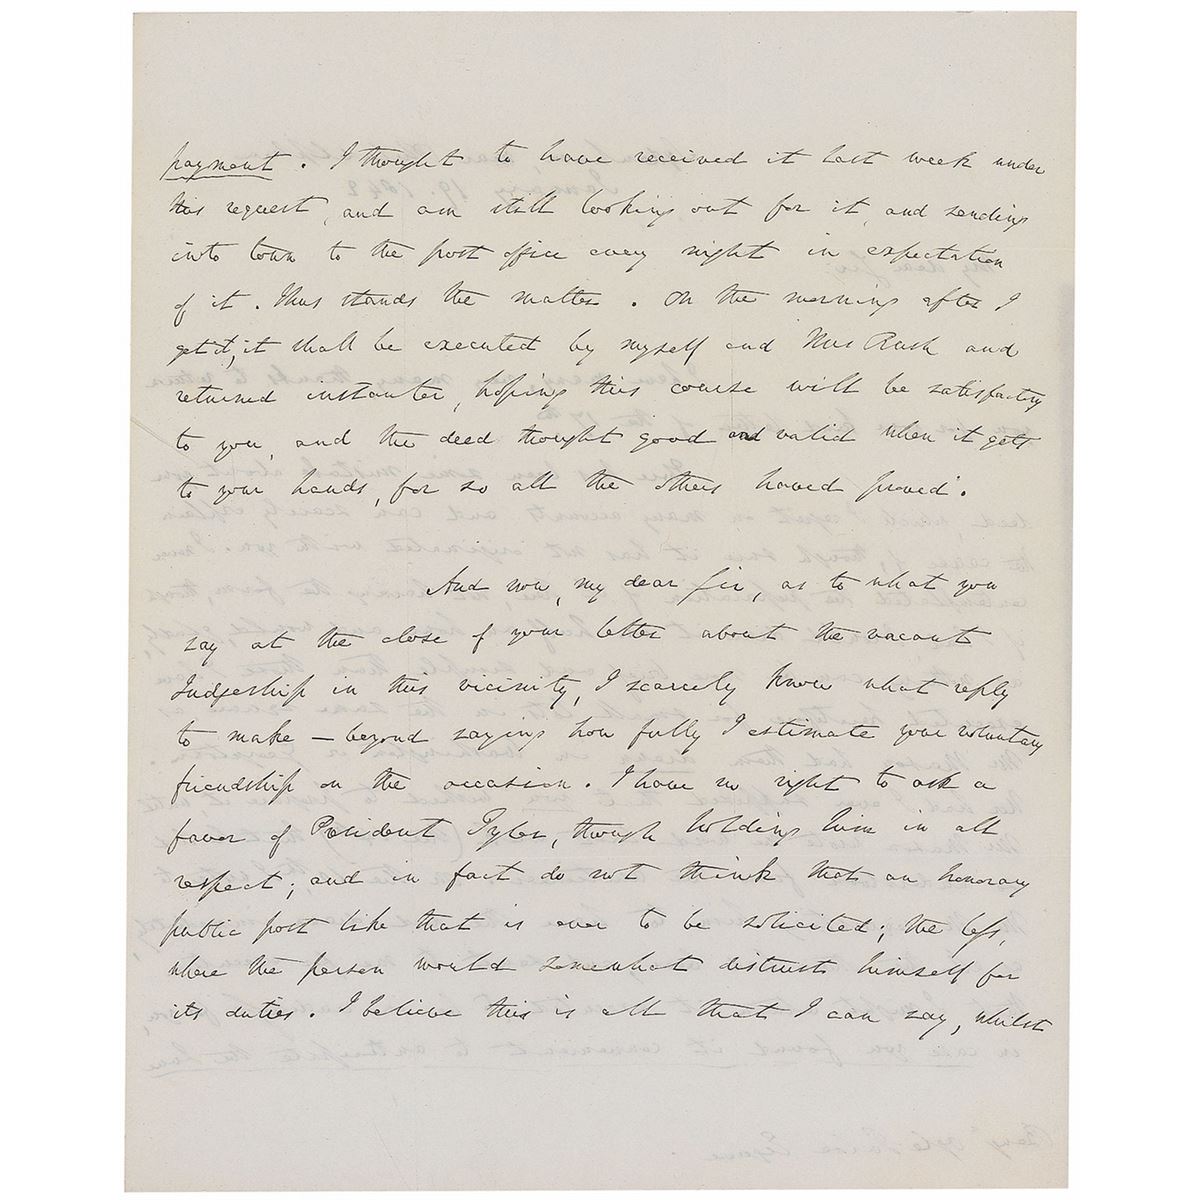 payment. I thought to have received it last week under
this request, and am still looking out for it, and sending
into town to the post office every night in expectation
of it. Thus stands the matter. On the morning after I
get it, it shall be executed by myself and Mrs Rush and
returned instanter, hoping this course will be satisfactory
to you, and the deed thought good and valid when it gets
to your hands, for so all the others haved proved.
And now, my dear Sir, as to what you
say at the close of your letter about the vacant
Judgeship in this vicinity, I scarcely know what reply
to make — beyond saying how fully I estimate your voluntary
friendship on the occasion. I have no right to ask a
favor of President Tyler, though holding him in all
respect; and in fact do not think that an honorary
public post like that is ever to be solicited; the less,
where the person would somewhat distrust himself for
its duties. I believe this is all that I can say, whilst